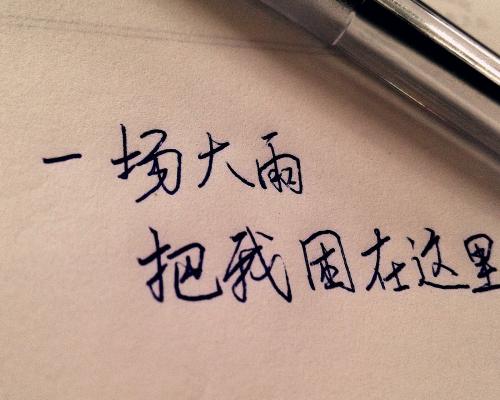 一场大雨
把我困在这里